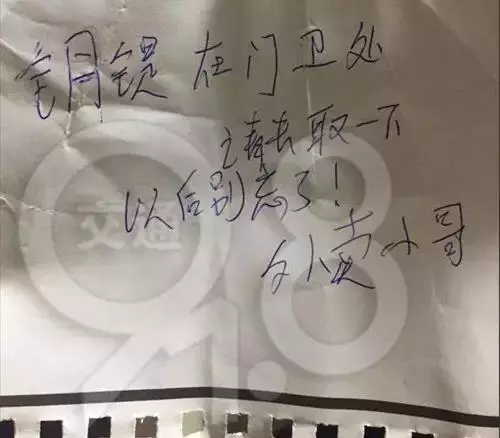 钥匙在门卫处
请去取一下
以后别忘了!
外卖小哥
交通
98